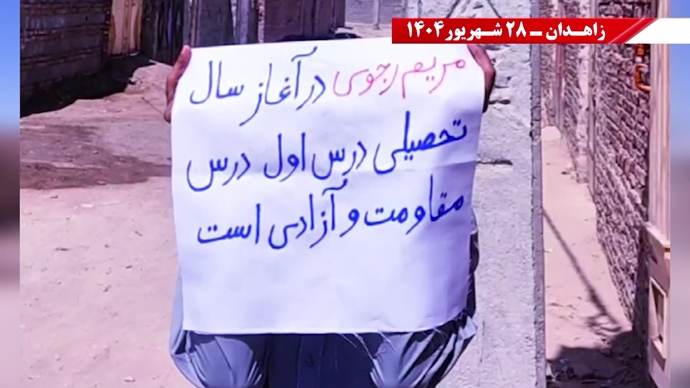 زاهدان – ۲۸ شهریور۱۴۰۴
مریم رجوی در آغاز سال
تحصیلی درس اول درس
مقاومت و آزادی است